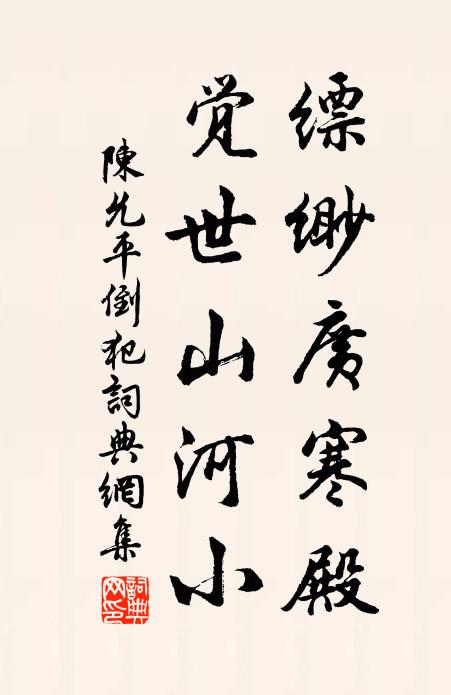 缥缈廣寒殿
觉世山河小
陳允平倒犯詞典網集
詞典網印